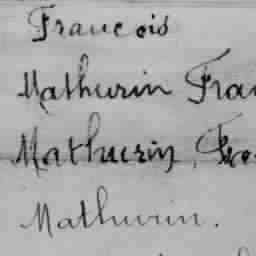 Francois
Mathurin Fran
Mathurin, Fra
Mathurin.